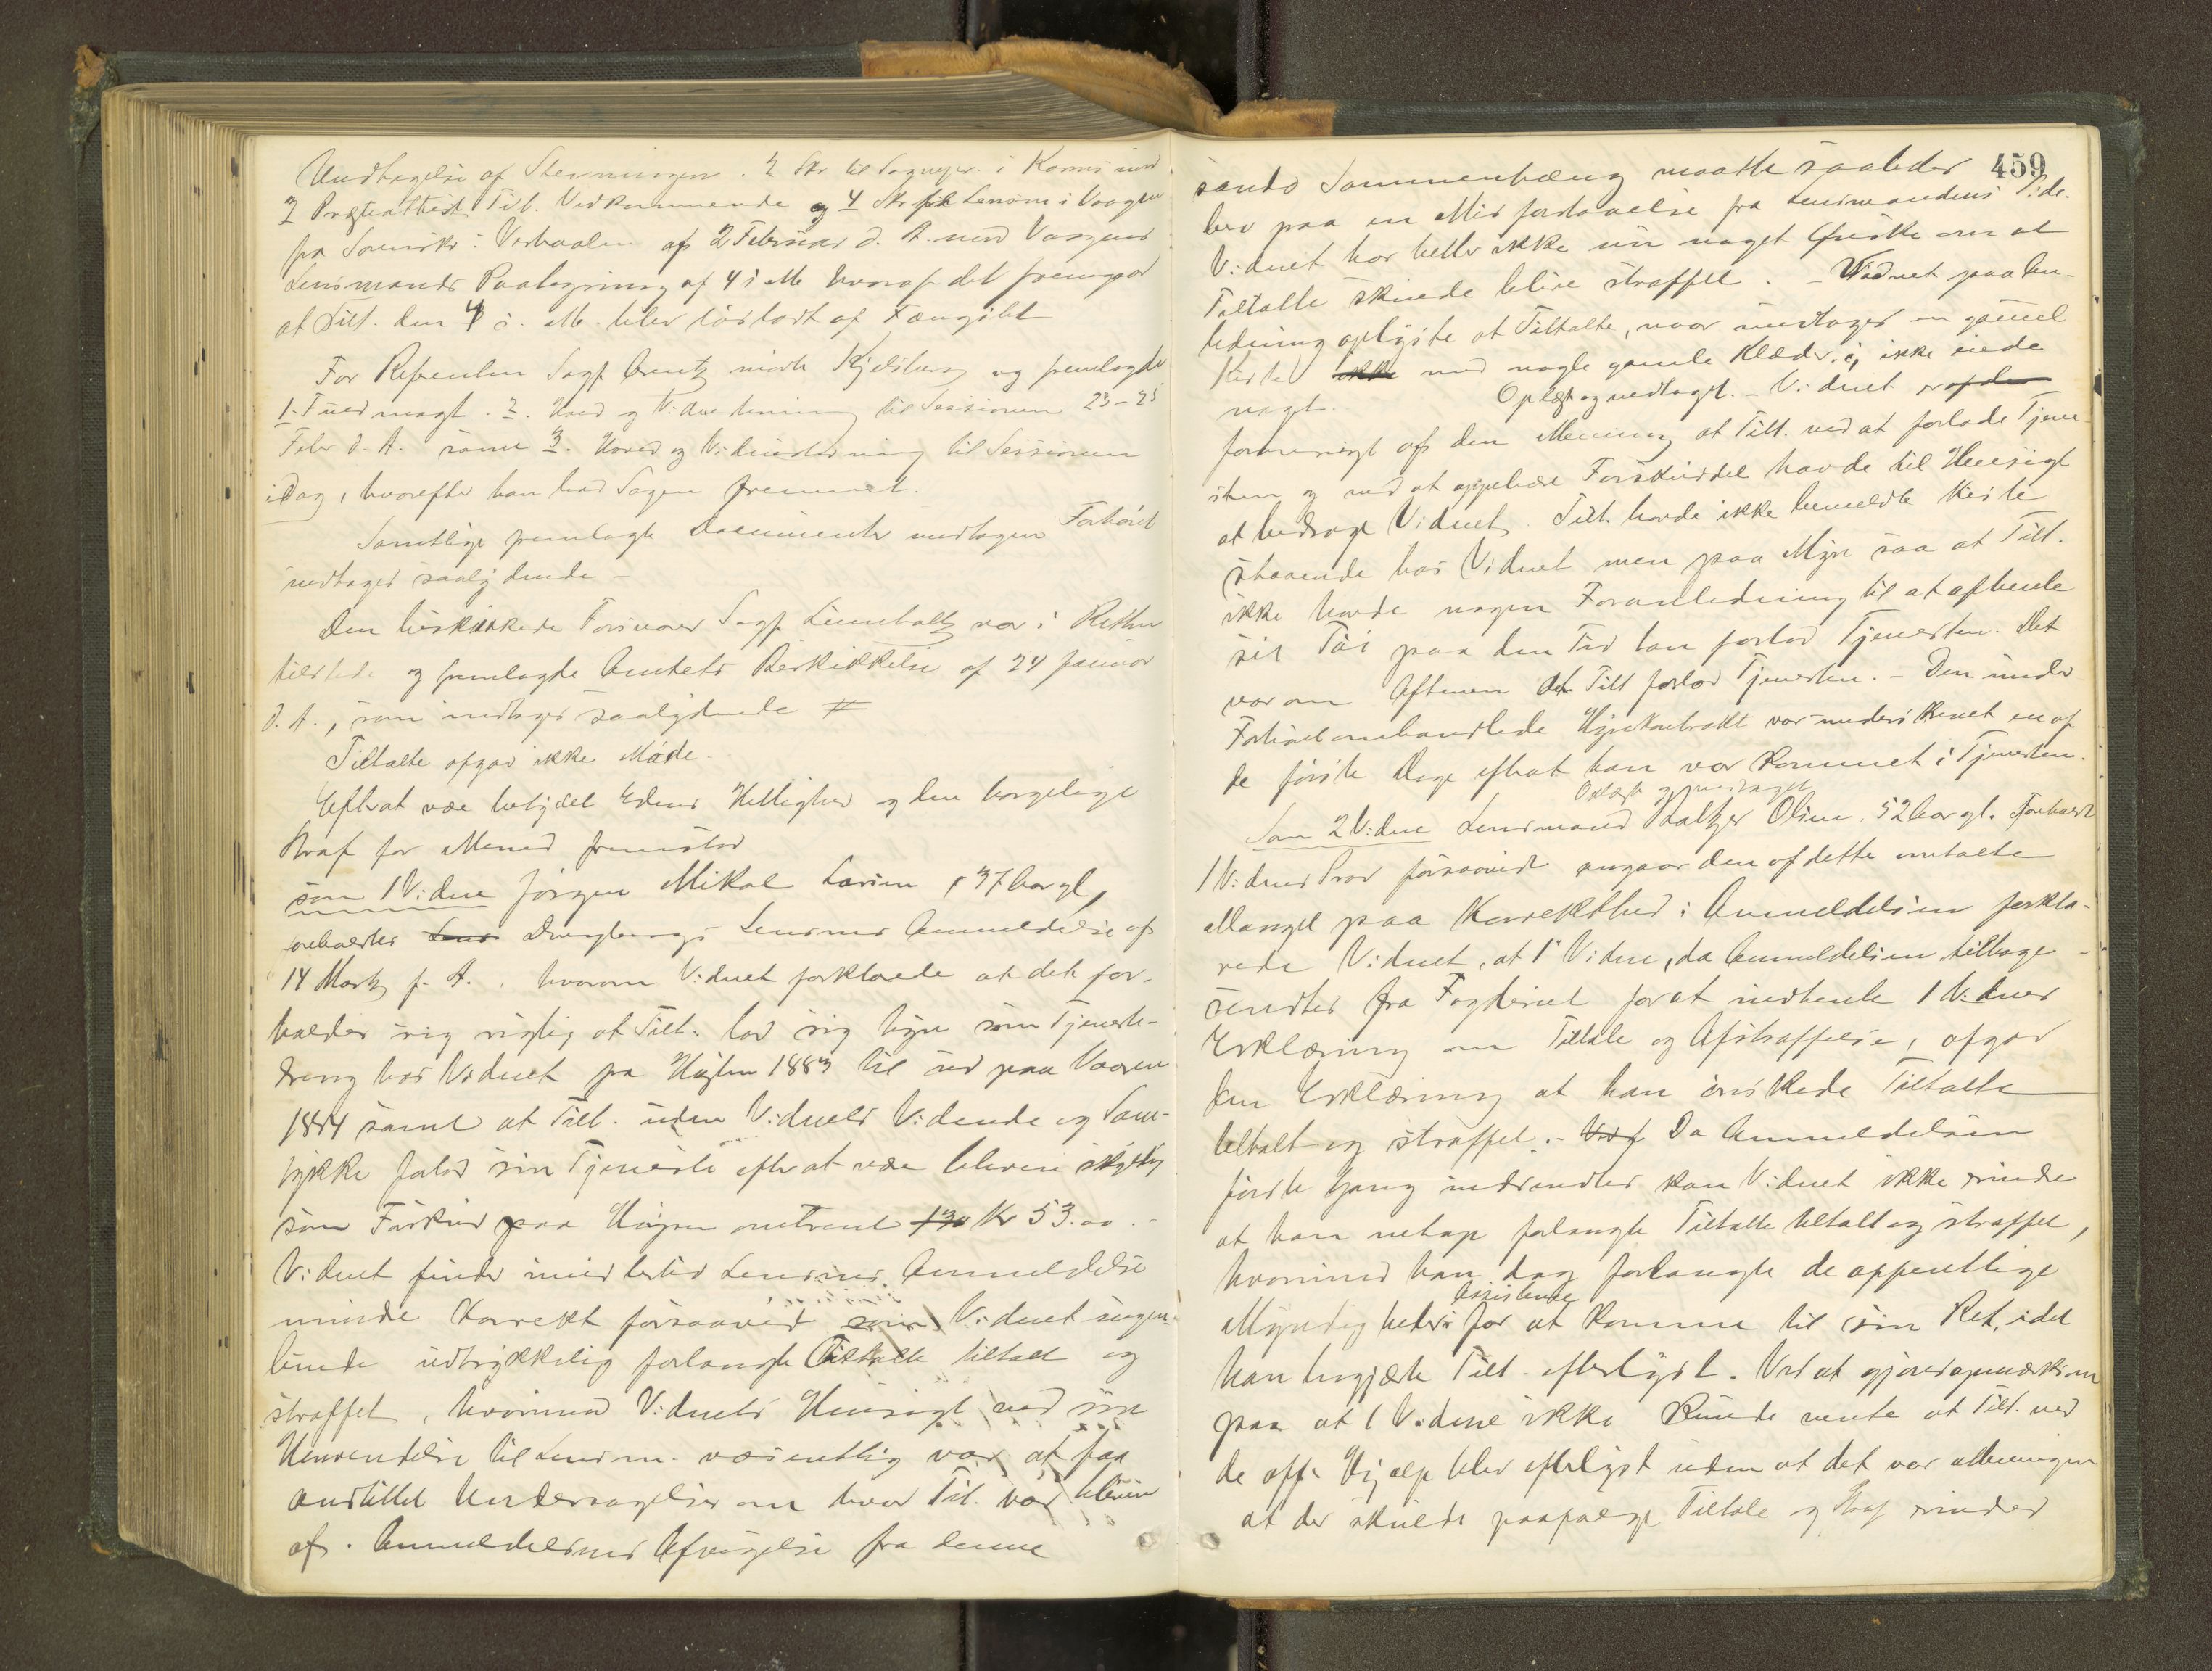 Undtagelse af Stevningen. 2 Skr til Sognepr. i med
3 Præsteattest Tilt. Vedkommende og 4 Skr fra Lensm i Vaagen
fra Svensk: af 2 Februar d. A. med Vaagens
Lensmands Paategning af 4 s. M. hvoraf det fremgaar
at Tilt. den 4 s. M. blev løsladt af Fængslet
For Referenten Sagf. Creutz mødte Kjelsberg og fremlagde
1. Fuldmagt. 2. Hoved og Vidnestevning til Sessionen 23-25
Febr d. A. samt 3. Hoved og Vidnestevning til Sessionen
idag, hvorefter han bad Sagen fremmet.
Samtlige fremlagte Documenter modtages Forhøret
indtages saalydende –
Den beskikkede Forsvarer Sagf. var i Retten
tilstede og fremlagde Amtets Beskikkelse af 24 Januar
d. A., som indtages saalydende #
Tiltalte afgav ikke Møde.
Efterat være betydet Edens Hellighed og den borgelige
Straf for Mened fremstod
som 1 Vidne Jørgen Mikal Larsen, 37 Aar gl,
forehaves Lens Lensmns Anmeldelse af
14 Marts f. A., hvorom Vidnet forklarede at det for-
holder sig rigtig at Tilt. lod sig hyre som Tjeneste-
dreng hos Vidnet fra Høsten 1883 til ud paa Vaaren
1884 samt at Tilt. uden Vidnets Vidende og Sam-
tykke forlod sin Tjeneste efter at være bleven skyldig
som Forskud paa Hyren omtrent 130 Kr 53.00.–
Vidnet finder imidlertid Lensmns Anmeldelse
mindre korrekt forsaavidt som Vidnet ingen-
lunde udtrykkelig forlangte Tiltalte tiltalt og
straffet, hvorimod Vidnets Hensigt ved sin
Henvendelse til Lensm. væsentlig var at faa
anstillet Undersøgelse om hvor Tilt. var bleven
af. Anmeldelsens Afvigelse fra denne
459
sande Sammenhæng maatte saaledes
bero paa en Misforstaaelse fra Lensmandens Side.
Vidnet har heller ikke nu noget Ønske om at
Tiltalte skulde blive straffet. – Vidnet paa An-
ledning oplyste at Tiltalte, naar undtages en gammel
Kiste ikke med nogle gamle Klæder i, ikke eiede
noget. Oplæst og vedtaget. – Vidnet er af den
forøvrigt af den Mening at Tilt. ved at forlade Tjene
sten og ved at oppebære Forskuddet havde til Hensigt
at bedrage Vidnet. Tilt. havde ikke bemeldte Kiste
staaende hos Vidnet men paa Myre saa at Tilt.
ikke havde nogen Foranledning til at afhente
sit Tøi paa den Tid han forlod Tjenesten. Det
var om Aftenen at Tilt forlod Tjenesten. – Den under
Forhøret omhandlede Hyrekontrakt var underskrevet en af
de første Dage efterat han var kommet i Tjenesten.
Oplæst og vedtaget
Som 2 Vidne Lensmand Baltzer Olsen, 52 Aar gl. Forehaves
1 Vidnes Prov forsaavidt angaar den af dette omtalte
Mangel paa Korrekthed i Anmeldelsen forkla-
rede Vidnet, at 1ste Vidne, da Anmeldelsen tilbage-
sendtes fra Fogderiet forat indhente 1 Vidnes
Erklæring om Tiltale og Afstraffelse, afgav
den Erklæring at han ønskede Tiltalte
tiltalt og straffet. – Ved f Da Anmeldelsen
første Gang indsendtes kan Vidnet ikke erindre
at han netop forlangte Tiltalte tiltalt og straffet,
hvorimod han dog forlangte de offentlige
Assistance
Myndigheders for at komme til sin Ret, idet
han begjærte Tilt. efterlyst. Ved at gjøres opmærksom
paa at 1 Vidne ikke kunde vente at Tilt. ved
de off. Hjælp blev efterlyst uden at det var Meningen
at der skulde paafølge Tiltale og Straf erindrer